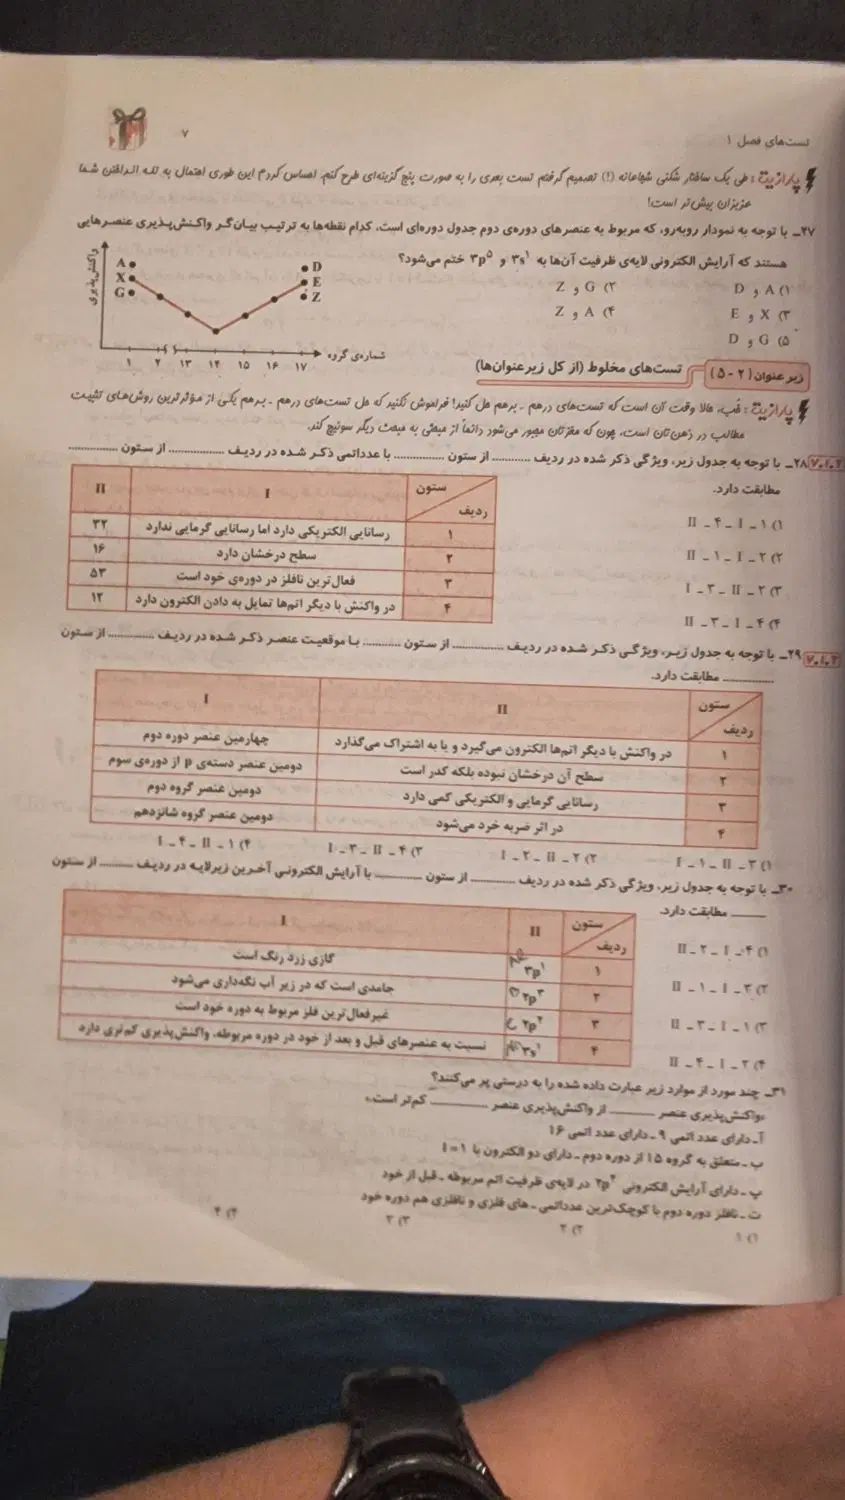 تست‌های فصل ۱
۷
پارازیت: طی یک ساختار شکنی شجاعانه (!) تصمیم گرفتم تست بعدی را به صورت پنج گزینه‌ای طرح کنم. احساس کردم این طوری احتمال به تله انداختن شما
عزیزان بیش‌تر است!
۲۷ـ با توجه به نمودار روبه‌رو، که مربوط به عنصرهای دوره‌ی دوم جدول دوره‌ای است، کدام نقطه‌ها به ترتیب بیان‌گر واکنش‌پذیری عنصرهایی
هستند که آرایش الکترونی لایه‌ی ظرفیت آن‌ها به ۳s۱ و ۳p۵ ختم می‌شود؟
۱) A و D
۲) G و Z
۳) X و E
۴) A و Z
۵) G و D
واکنش‌پذیری
A
X
G
D
E
Z
۱ ۲ ۱۳ ۱۴ ۱۵ ۱۶ ۱۷
شماره‌ی گروه
زیر عنوان (۲ - ۵)
تست‌های مخلوط (از کل زیرعنوان‌ها)
پارازیت: خُب، حالا وقت آن است که تست‌های درهم ـ برهم حل کنید! فراموش نکنید که حل تست‌های درهم ـ برهم یکی از مؤثرترین روش‌های تثبیت
مطالب در ذهن‌تان است، چون که مغزتان مجبور می‌شود دائماً از مبحثی به مبحث دیگر سوئیچ کند.
۲۸ـ با توجه به جدول زیر، ویژگی ذکر شده در ردیف ............ از ستون ............ با عدداتمی ذکر شده در ردیف ............ از ستون ............
مطابقت دارد.
۱) ۱ ـ I ـ ۴ ـ II
۲) ۲ ـ I ـ ۱ ـ II
۳) ۲ ـ II ـ ۳ ـ I
۴) ۴ ـ I ـ ۳ ـ II
ستون
ردیف
I
II
۱ رسانایی الکتریکی دارد اما رسانایی گرمایی ندارد ۳۲
۲ سطح درخشان دارد ۱۶
۳ فعال‌ترین نافلز در دوره‌ی خود است ۵۳
۴ در واکنش با دیگر اتم‌ها تمایل به دادن الکترون دارد ۱۲
۲۹ـ با توجه به جدول زیر، ویژگی ذکر شده در ردیف ............ از ستون ............ با موقعیت عنصر ذکر شده در ردیف ............ از ستون
............ مطابقت دارد.
ستون
ردیف
II
I
۱ در واکنش با دیگر اتم‌ها الکترون می‌گیرد و یا به اشتراک می‌گذارد چهارمین عنصر دوره دوم
۲ سطح آن درخشان نبوده بلکه کدر است دومین عنصر دسته‌ی p از دوره‌ی سوم
۳ رسانایی گرمایی و الکتریکی کمی دارد دومین عنصر گروه دوم
۴ در اثر ضربه خرد می‌شود دومین عنصر گروه شانزدهم
۱) ۳ ـ II ـ ۱ ـ I
۲) ۲ ـ II ـ ۲ ـ I
۳) ۴ ـ II ـ ۳ ـ I
۴) ۱ ـ II ـ ۴ ـ I
۳۰ـ با توجه به جدول زیر، ویژگی ذکر شده در ردیف ............ از ستون ............ با آرایش الکترونی آخرین زیرلایه در ردیف ............ از ستون
............ مطابقت دارد.
۱) ۴ ـ I ـ ۲ ـ II
۲) ۳ ـ I ـ ۱ ـ II
۳) ۱ ـ I ـ ۳ ـ II
۴) ۲ ـ I ـ ۴ ـ II
ستون
ردیف
II
I
۱ ۳p۱ گازی زرد رنگ است
۲ ۲p۳ جامدی است که در زیر آب نگه‌داری می‌شود
۳ ۲p۲ غیرفعال‌ترین فلز مربوط به دوره خود است
۴ ۳s۱ نسبت به عنصرهای قبل و بعد از خود در دوره مربوطه، واکنش‌پذیری کم‌تری دارد
۳۱ـ چند مورد از موارد زیر عبارت داده شده را به درستی پر می‌کنند؟
«واکنش‌پذیری عنصر ............ از واکنش‌پذیری عنصر ............ کم‌تر است.»
آ ـ دارای عدد اتمی ۹ ـ دارای عدد اتمی ۱۶
ب ـ متعلق به گروه ۱۵ از دوره دوم ـ دارای دو الکترون با l = ۱
پ ـ دارای آرایش الکترونی ۲p۴ در لایه‌ی ظرفیت اتم مربوطه ـ قبل از خود
ت ـ نافلز دوره دوم با کوچک‌ترین عدداتمی ـ های فلزی و نافلزی هم دوره خود
۱) ۱
۲) ۲
۳) ۳
۴) ۴